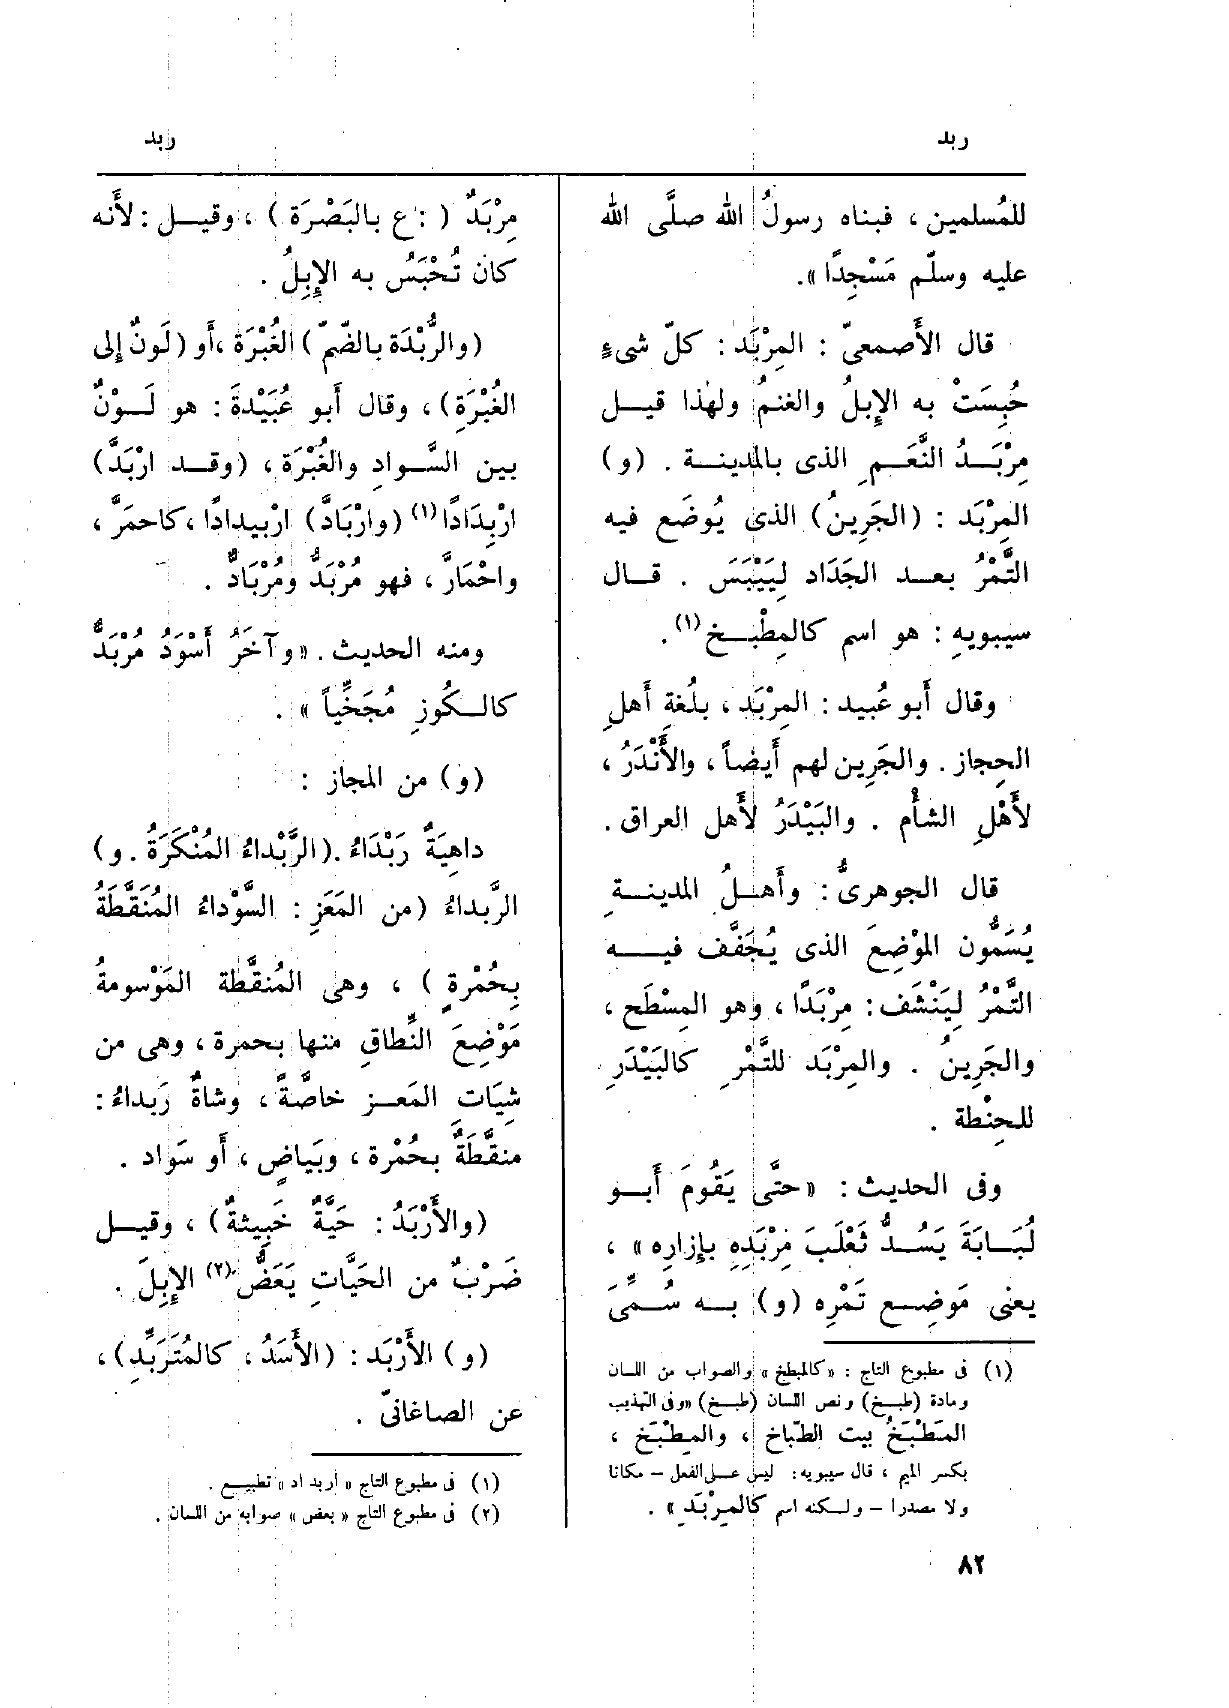 ربد
ربد
للمُسلمين ، فبناه رسولُ الله صلَّى الله
عليه وسلّم مَسْجِدًا ».
قال الأَصمعىّ : المِرْبَد : كلّ شىءٍ
حُبِسَتْ به الإِبلُ والغنمُ ولهٰذا قيل
مِرْبَدُ النَّعَمِ الذى بالمدينة . (و)
المِرْبَد : (الجَرِينُ) الذى يُوضَع فيه
التَّمْرُ بعد الجَدَاد لِيَيْبَسَ . قال
سيبويهِ : هو اسم كالمِطْبخ(١) .
وقال أَبو عُبيد : المِرْبَد ، بلُغةِ أَهلِ
الحِجاز . والجَرِين لهم أَيضاً ، والأَنْدَرُ ،
لأَهْلِ الشأْم . والبَيْدَرُ لأَهل العراق .
قال الجوهرىُّ : وأَهلُ المدينةِ
يُسَمُّون المَوْضِعَ الذى يُجَفَّف فيه
التَّمْرُ لِيَنْشَف : مِرْبَدًا ، وهو المِسْطَح ،
والجَرِينُ . والمِرْبَد للتَّمْرِ كالبَيْدَرِ
للحِنْطة .
وفى الحديث : «حتَّى يَقُومَ أَبو
لُبَابَةَ يَسُدُّ ثَعْلَبَ مِرْبَدِهِ بإِزارِه » ،
يعنى مَوضِع تَمْرِه (و) به سُمِّىَ
(١) فى مطبوع التاج : «كالمبطخ » والصواب من اللسان
ومادة (طبخ) ونص اللسان (طبخ) «وفى التهذيب
المَطْبَخُ بيت الطبّاخ ، والمِطْبَخ ،
بكسر الميم ، قال سيبويه : ليس على الفعل – مكانا
ولا مصدرا – ولكنه اسم كالمِرْبَد » .
مِرْبَدٌ ( : ع بالبَصْرَة ) ، وقيل : لأَنه
كان تُحْبَسُ به الإِبِلُ .
(والرُّبْدَة بالضّمّ ) الغُبْرَة ،أَو (لَونٌ إِلى
الغُبْرَةِ) ، وقال أَبو عُبَيْدةَ : هو لَوْنٌ
بين السَّوادِ والغُبْرَة ، (وقد ارْبَدَّ)
ارْبِدَادًا(١) (وارْبَادَّ) ارْبيدادًا ،كاحمَرَّ ،
واحْمَارَّ ، فهو مُرْبَدٌّ ومُرْبَادٌّ .
ومنه الحديث . «وآخَرُ أَسْوَدُ مُرْبَدٌّ
كالكُوزِ مُجَخِّياً » .
(و) من المجاز :
داهِيَةٌ رَبْدَاءُ .(الرَّبْداءُ المُنْكَرَةُ . و)
الرَّبداءُ (من المَعَزِ : السَّوْداءُ المُنَقَّطَةُ
بِحُمْرةٍ ) ، وهى المُنقَّطة المَوْسومةُ
مَوْضِعَ النِّطاقِ منها بحمرة ، وهى من
شِيَاتِ المَعزِ خاصَّةً ، وشاةٌ رَبداءُ :
منقَّطَةٌ بحُمْرة ، وبَياضٍ ، أَو سَواد .
(والأَرْبَدُ : حَيَّةٌ خَبِيثةٌ) ، وقيل
ضَرْبٌ من الحَيَّاتِ يَعَضُّ(٢) الإِبِلَ .
(و) الأَرْبَد : (الأَسَدُ ، كالمُتَرَبِّدِ) ،
عن الصاغانىّ .
(١) فى مطبوع التاج « أربد اد » تطبيع .
(٢) فى مطبوع التاج « بعض » صوابه من اللسان .
٨٢